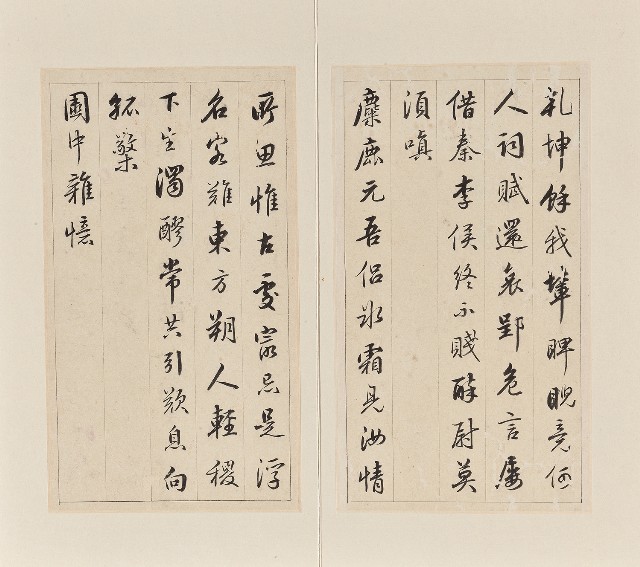 乾坤餘我輩睥睨竟何
人詞賦還哀郢危言屢
借秦李侯終不賤醉尉莫
須嗔
麋鹿元吾侶冰霜見汝情
所思惟古處最忌是浮
名客難東方朔人輕稷
下生濁醪常共引歎息向
孤檠
園中雜憶